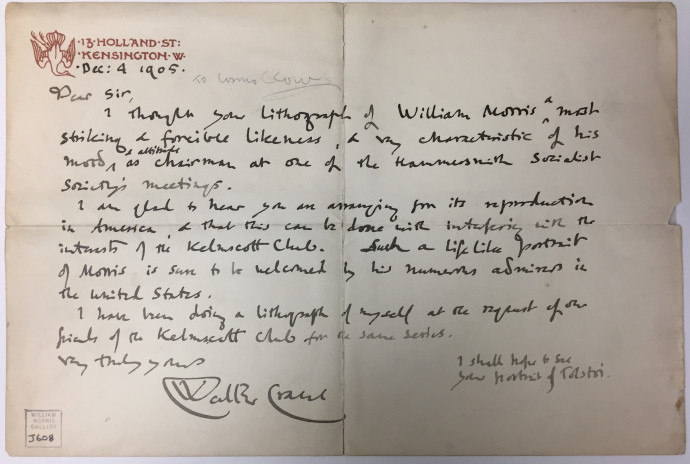 ·13·HOLLAND·ST:
·KENSINGTON·W·
Dec: 4 1905.
To Cosmo Rowe
Dear Sir,
I thought your lithograph of William Morris a most
striking & forcible likeness, & very characteristic of his
mood & attitude, as chairman at one of the Hammersmith Socialist
Society's meetings.
I am glad to hear you are arranging for its reproduction
in America, & that this can be done with interfering with the
interests of the Kelmscott Club. Such a lifelike portrait
of Morris is sure to be welcomed by his numerous admirers in
the United States.
I have been doing a lithograph of myself at the request of our
friends of the Kelmscott Club for the same series.
very truly yours
Walter Crane
I shall hope to see
your portrait of Tolstoi.
WILLIAM
MORRIS
GALLERY
J608